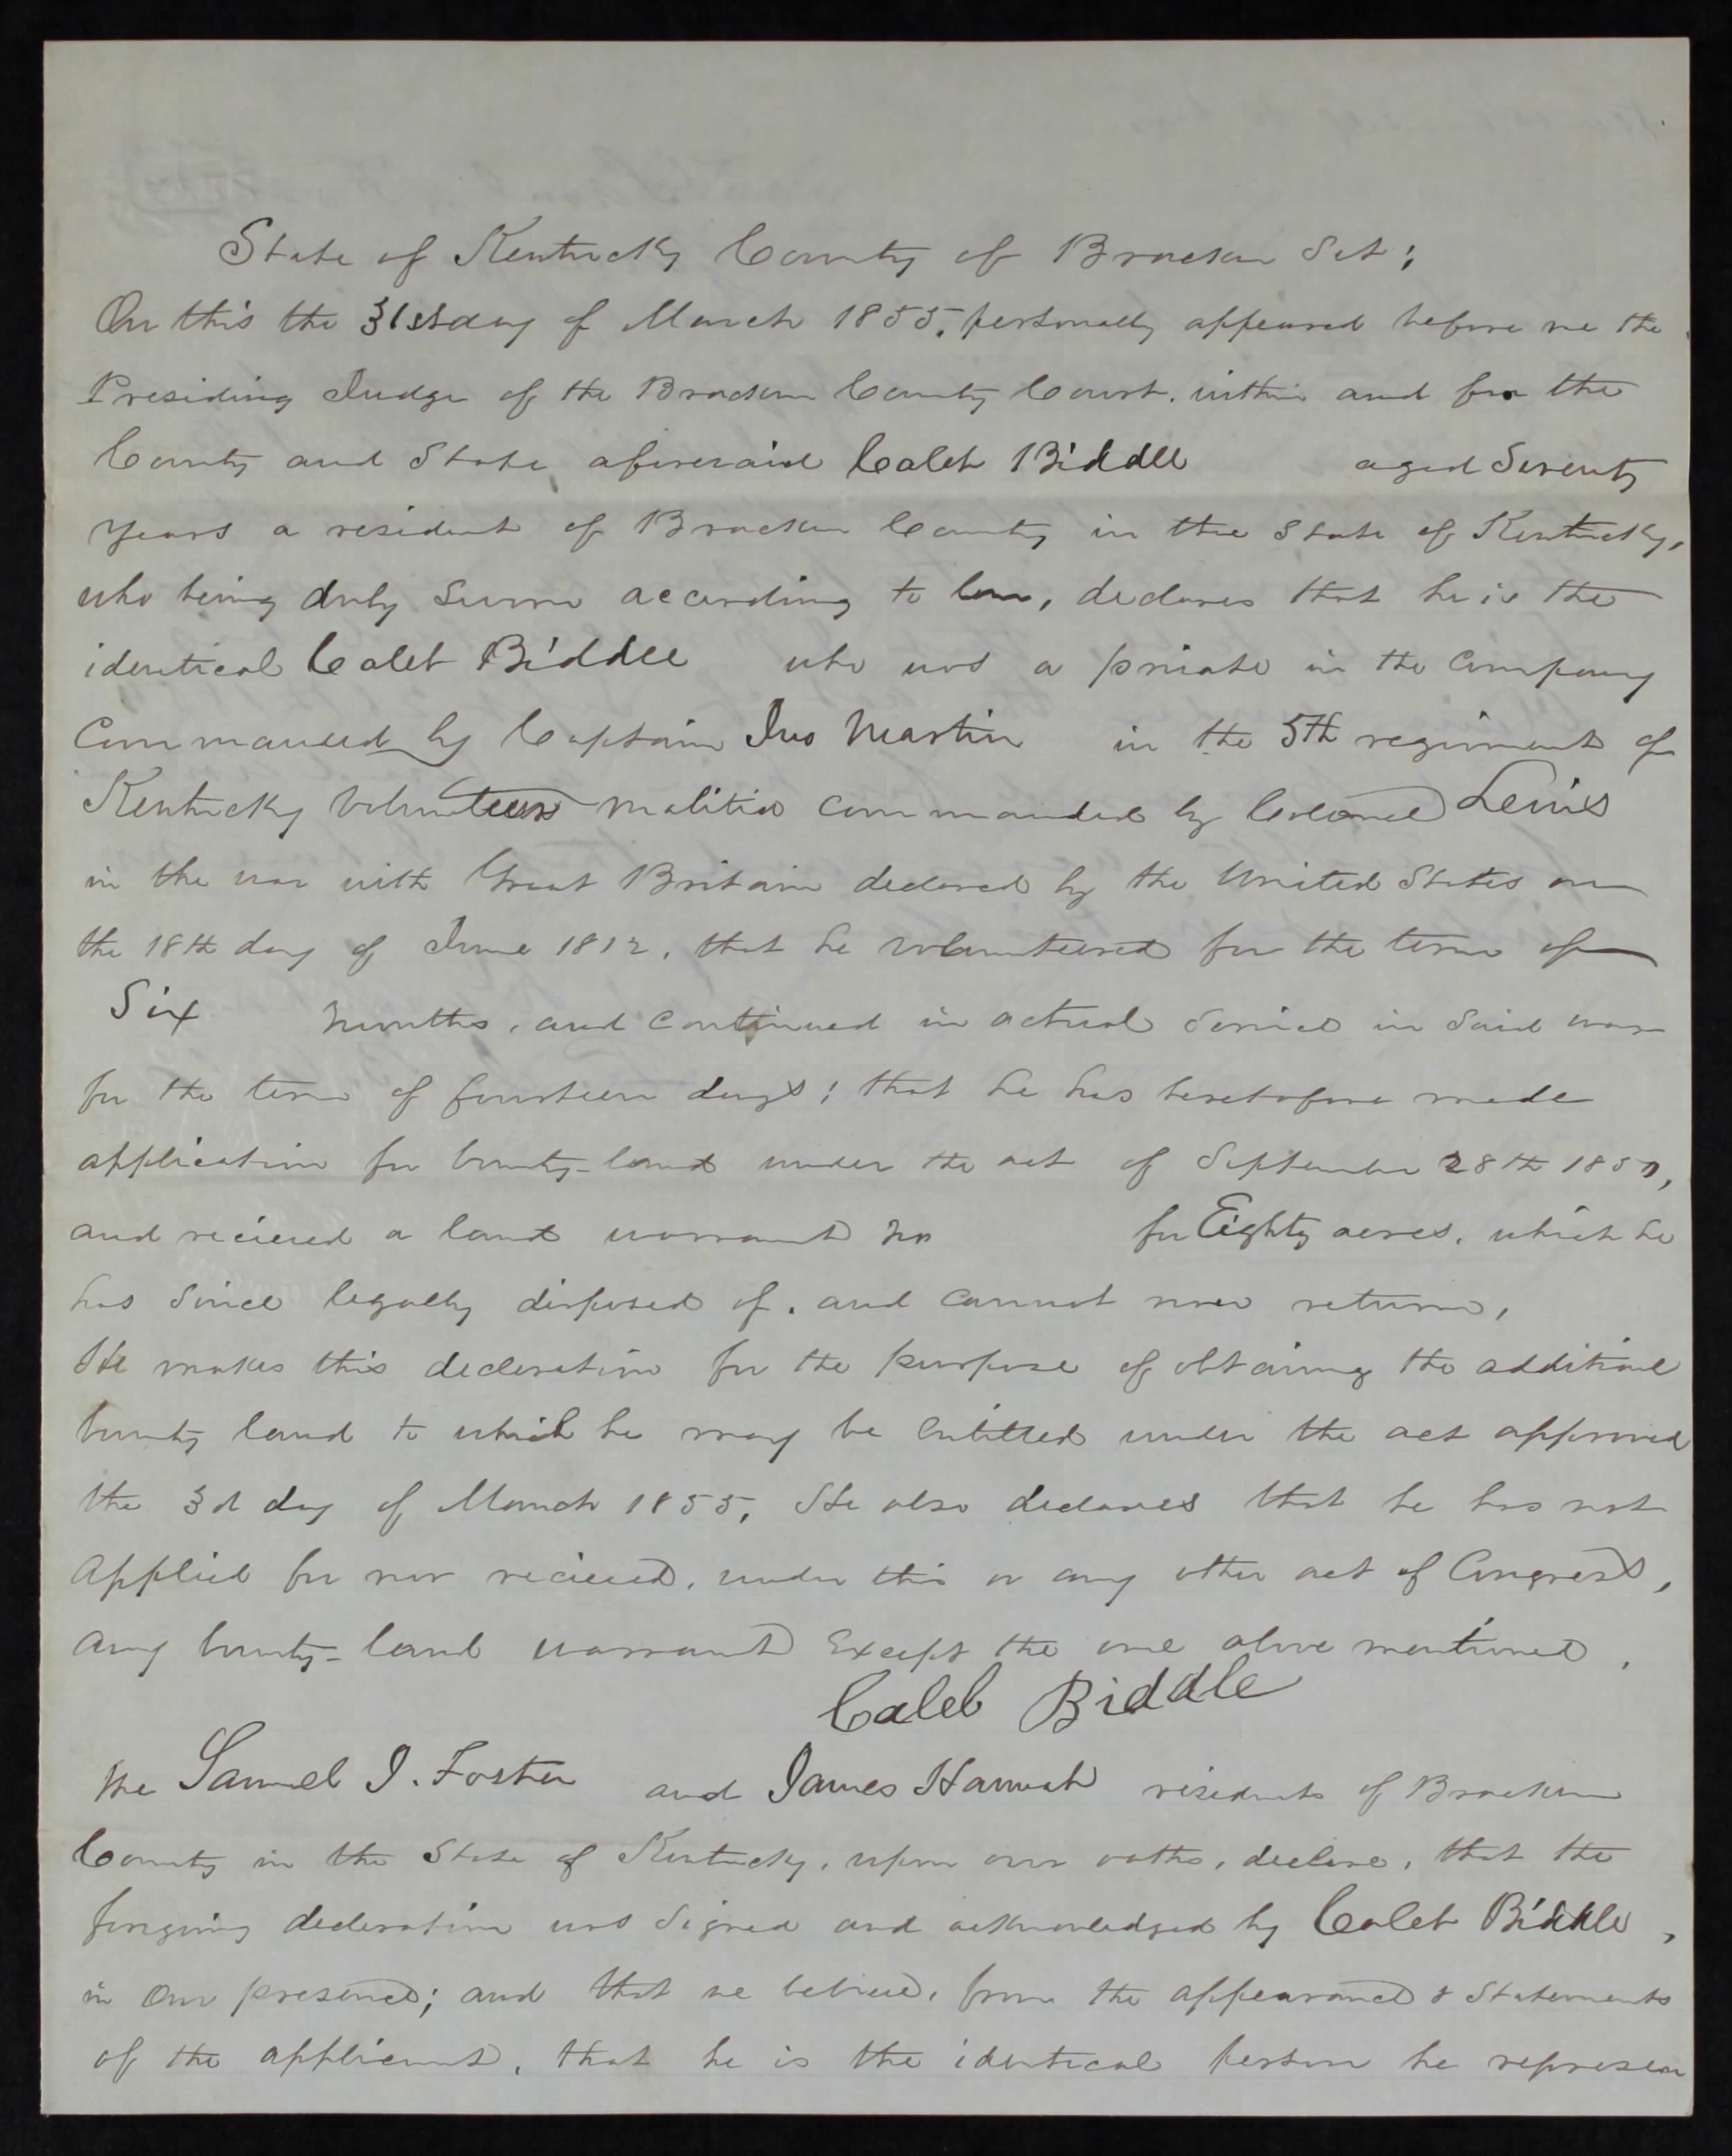 State of Kentucky County of Bracken Sct;
On this the 31st day of March 1855, personally appeared before me the
Presiding Judge of the Bracken County Court, within and for the
County and State aforesaid Caleb Biddle aged Seventy
years a resident of Bracken County in the State of Kentucky,
who being duly sworn according to law, declares that he is the
identical Caleb Biddle who was a private in the Company
Commanded by Captain Jno Martin in the 5th regiment of
Kentucky Volunteers malitia commanded by Colonel Lewis
in the war with Great Britain declared by the United States on
the 18th day of June 1812, that he volunteered for the term of
Six months, and continued in actual service in said war
for the term of fourteen days; that he has heretofore made
application for bounty-land under the act of September 28th 1850,
and recieved a land warrant No for Eighty acres, which he
has since legally disposed of, and cannot now return,
He makes this decleration for the purpose of obtaining the additional
bounty land to which he may be entitled under the act approved
the 3d day of March 1855, He also declares that he has not
applied for nor recieved, under this or any other act of Congress,
any bounty-land warrant except the one above mentioned,
Caleb Biddle
We Samuel J. Foster and James Hannah residents of Bracken
County in the State of Kentucky, upon our oaths, declare, that the
foregoing decleration was signed and acknowledged by Caleb Biddle,
in our presence; and that we believe, from the appearance & statements
of the applicant, that he is the identical person he represen